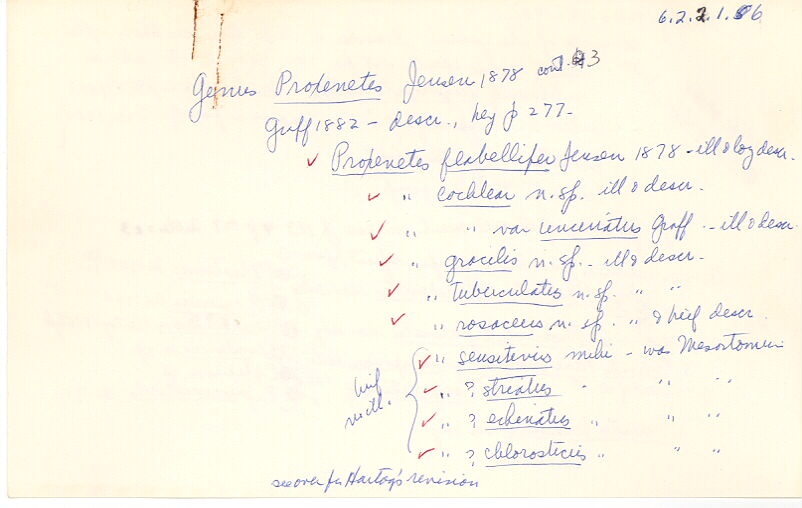 6.2.2.1.86
Genus Proxenetes Jensen 1878 cont. #3
Graff 1882 - descr., key p 277-
✓ Proxenetes flabellifer Jensen 1878 - ill & log descr.
✓ " cochlear n.sp. ill & descr.
✓ " " var uncinatus Graff - ill & descr.
✓ " gracilis n.sp. - ill & descr.
✓ " tuberculatus n.sp. " "
✓ " rosaceus n. sp. " & brief descr.
✓ " sensitivus mihi - was Mesostomum
✓ " ? striatus " " "
✓ " ? echinatus " " "
✓ " ? chlorosticus " " "
brief
see over for Hartog's revision